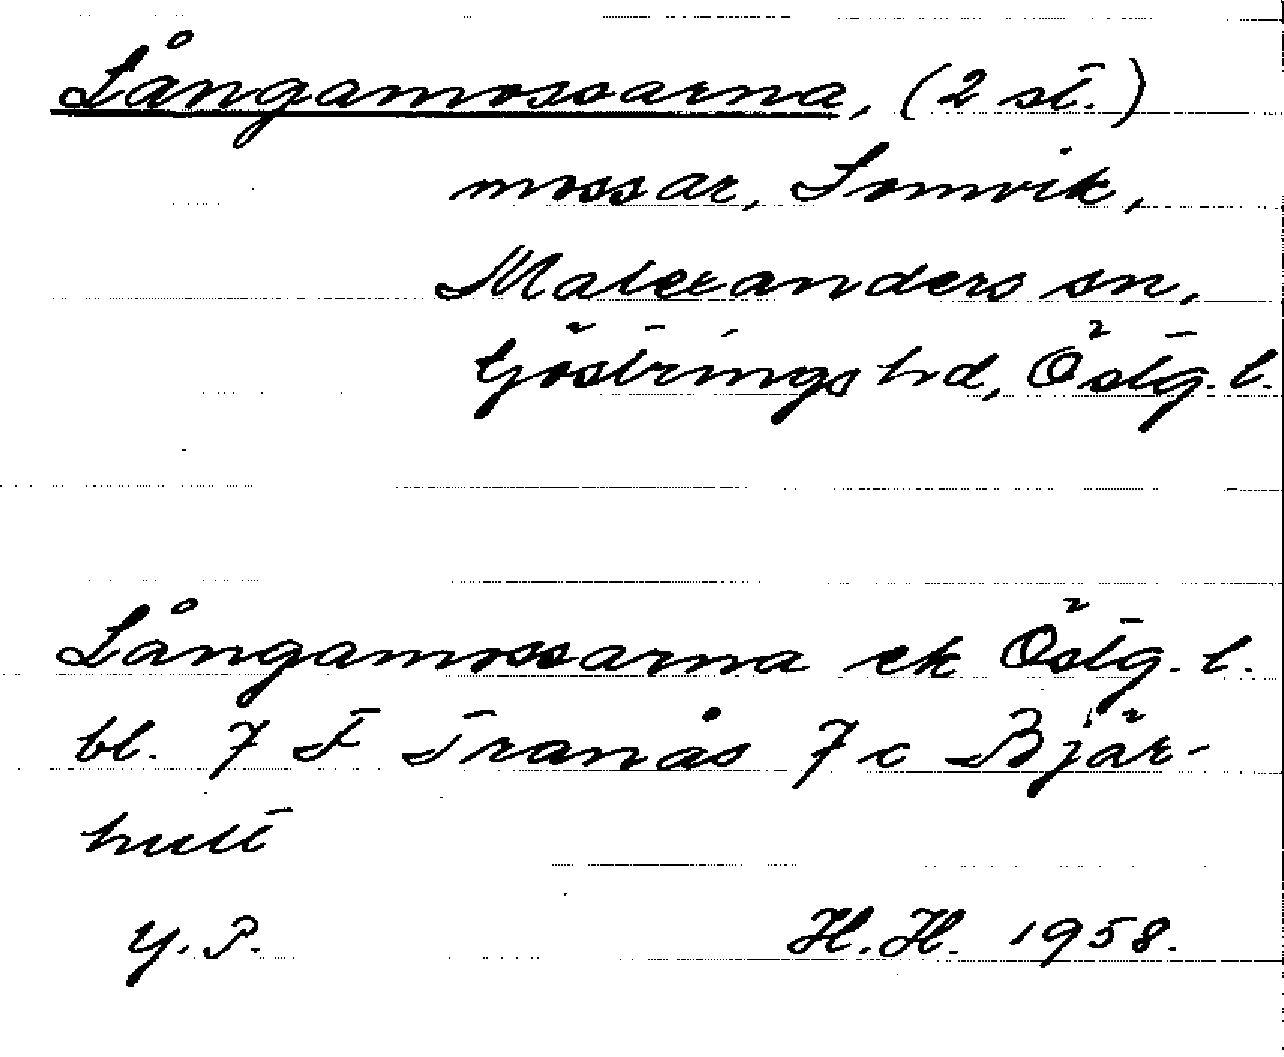 Långamossarna, (2 st.)
mossar, Somvik,
Malexanders sn,
Göstrings hd, Östg. l.
Långamossarna ek Östg. l.
bl. 7 F Tranås 7 c Bjär-
hult
Y. P. H. H. 1958.